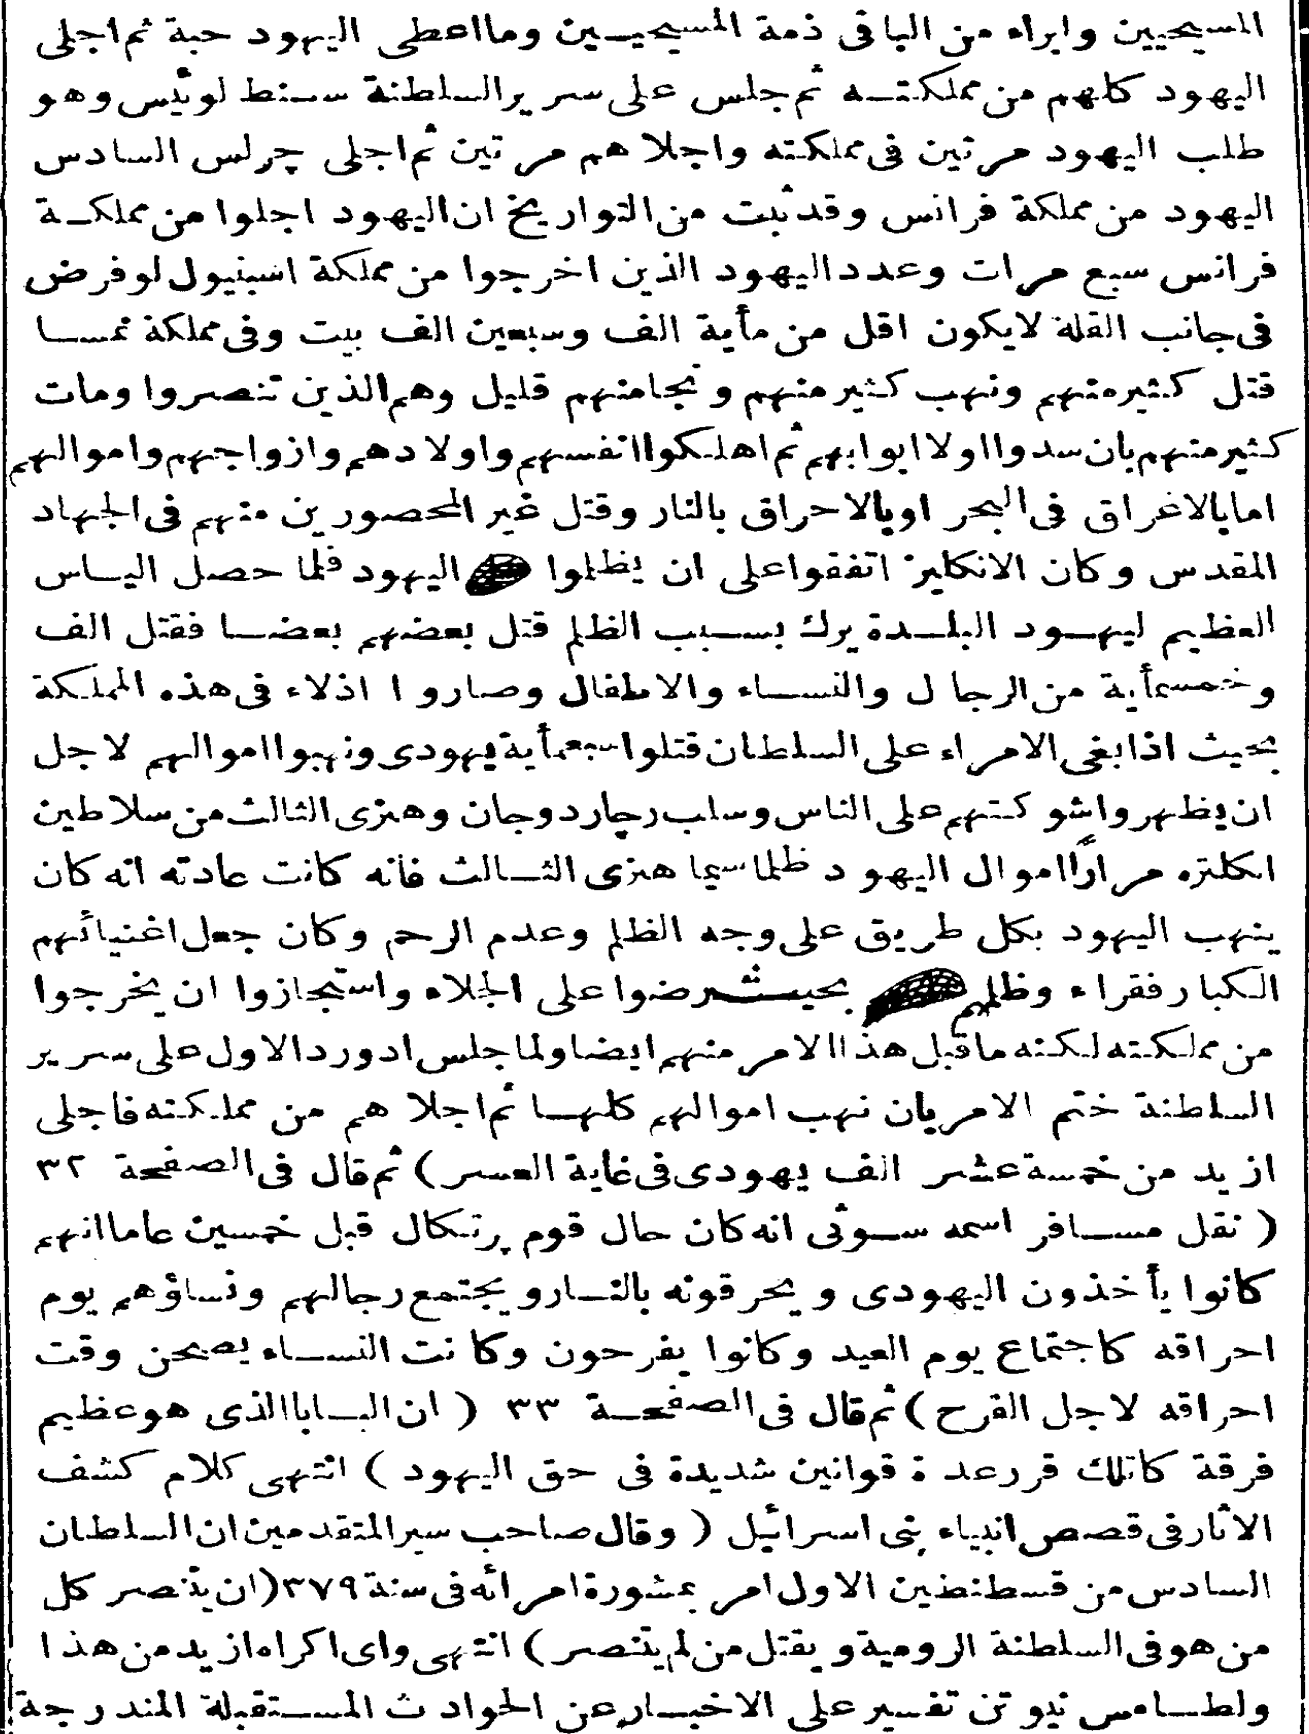 المسيحيين وابراه من الباقى ذمة المسيحيين وما اعطى اليهود حبة ثم اجلى
اليهود كلهم من مملكته ثم جلس على سرير السلطنة سنط لوئيس وهو
طلب اليهود مرتين فى مملكته واجلاهم مرتين ثم اجلى چرلس السادس
اليهود من مملكة فرانس وقد ثبت من التواريخ ان اليهود اجلوا من مملكة
فرانس سبع مرات وعدد اليهود الذين اخرجوا من مملكة اسبنيول لو فرض
فى جانب القلة لا يكون اقل من مأية الف وسبعين الف بيت وفى مملكة نمسا
قتل كثير منهم ونهب كثير منهم ونجا منهم قليل وهم الذين تنصروا ومات
كثير منهم بان سدوا اولا ابوابهم ثم اهلكوا انفسهم واولادهم وازواجهم واموالهم
اما بالاغراق فى البحر او بالاحراق بالنار وقتل غير المحصورين منهم فى الجهاد
المقدس وكان الانكليز اتفقوا على ان يظلوا اليهود فلما حصل الياس
العظيم ليهود البلدة يرك بسبب الظلم قتل بعضهم بعضا فقتل الف
وخمسمأية من الرجال والنساء والاطفال وصاروا اذلاء فى هذه المملكة
بحيث اذا بغى الامراء على السلطان قتلوا سبعمأية يهودى ونهبوا اموالهم لاجل
ان يظهروا شوكتهم على الناس وسلب رچارد وجان وهنرى الثالث من سلاطين
انكلتره مرارًا اموال اليهود ظلما سيما هنرى الثالث فانه كانت عادته انه كان
ينهب اليهود بكل طريق على وجه الظلم وعدم الرحم وكان جعل اغنيائهم
الكبار فقراء وظلمهم بحيث رضوا على الجلاء واستجازوا ان يخرجوا
من مملكته لكنه ما قبل هذا الامر منهم ايضا ولما جلس ادورد الاول على سرير
السلطنة ختم الامر بان نهب اموالهم كلها ثم اجلاهم من مملكته فاجلى
ازيد من خمسة عشر الف يهودى فى غاية العسر) ثم قال فى الصفحة ٣٢
( نقل مسافر اسمه سوتى انه كان حال قوم پرتكال قبل خمسين عاما انهم
كانوا يأخذون اليهودى ويحرقونه بالنار ويجتمع رجالهم ونساؤهم يوم
احراقه كاجتماع يوم العيد وكانوا يفرحون وكانت النساء يصحن وقت
احراقه لاجل الفرح) ثم قال فى الصفحة ٣٣ ( ان البابا الذى هو عظيم
فرقة كاتلك قرر عدة قوانين شديدة فى حق اليهود ) انتهى كلام كشف
الاثار فى قصص انبياء بنى اسرائيل ( وقال صاحب سير المتقدمين ان السلطان
السادس من قسطنطين الاول امر بمشورة امرائه فى سنة ٣٧٩ (ان يتنصر كل
من هو فى السلطنة الرومية ويقتل من لم يتنصر) انتهى واى اكراه ازيد من هذا
ولطامس نيوتن تفسير على الاخبار عن الحوادث المستقبلة المندرجة